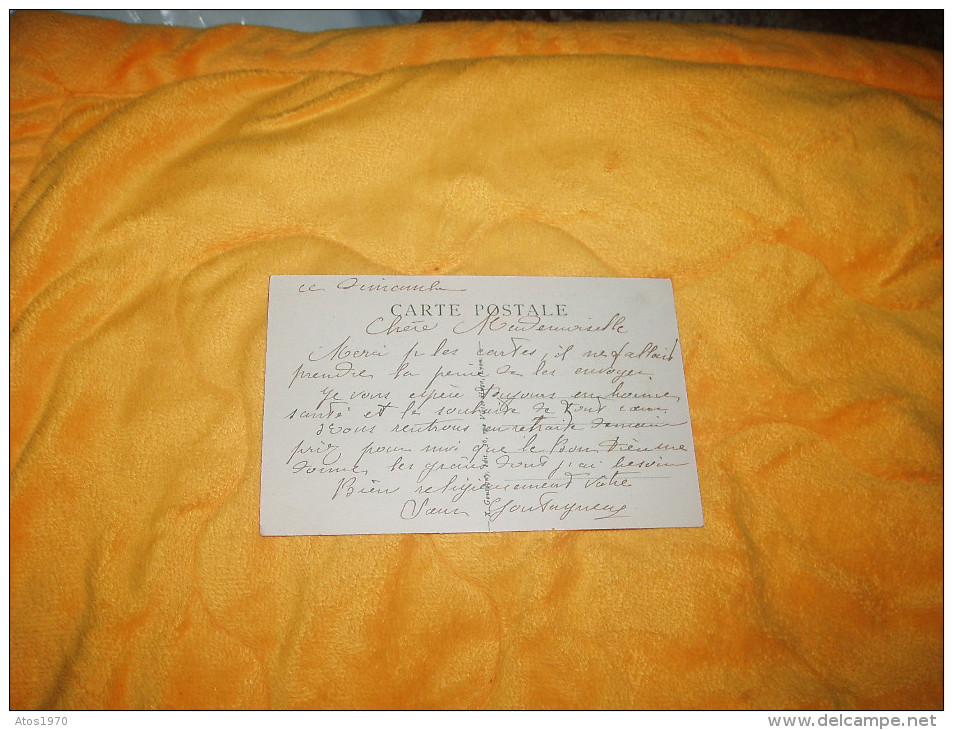 ce Dimanche
CARTE POSTALE
Chère Mademoiselle
Merci p les cartes, il ne fallait
prendre la peine de les envoyer
Je vous espère toujours en bonne
santé et le souhaite de tout cœur
Nous rentrons en retraite demain
priez pour moi que le Bon Dieu me
donne les grâces dont j'ai besoin
Bien religieusement votre
Sœur
Atos1970
www.delcampe.net